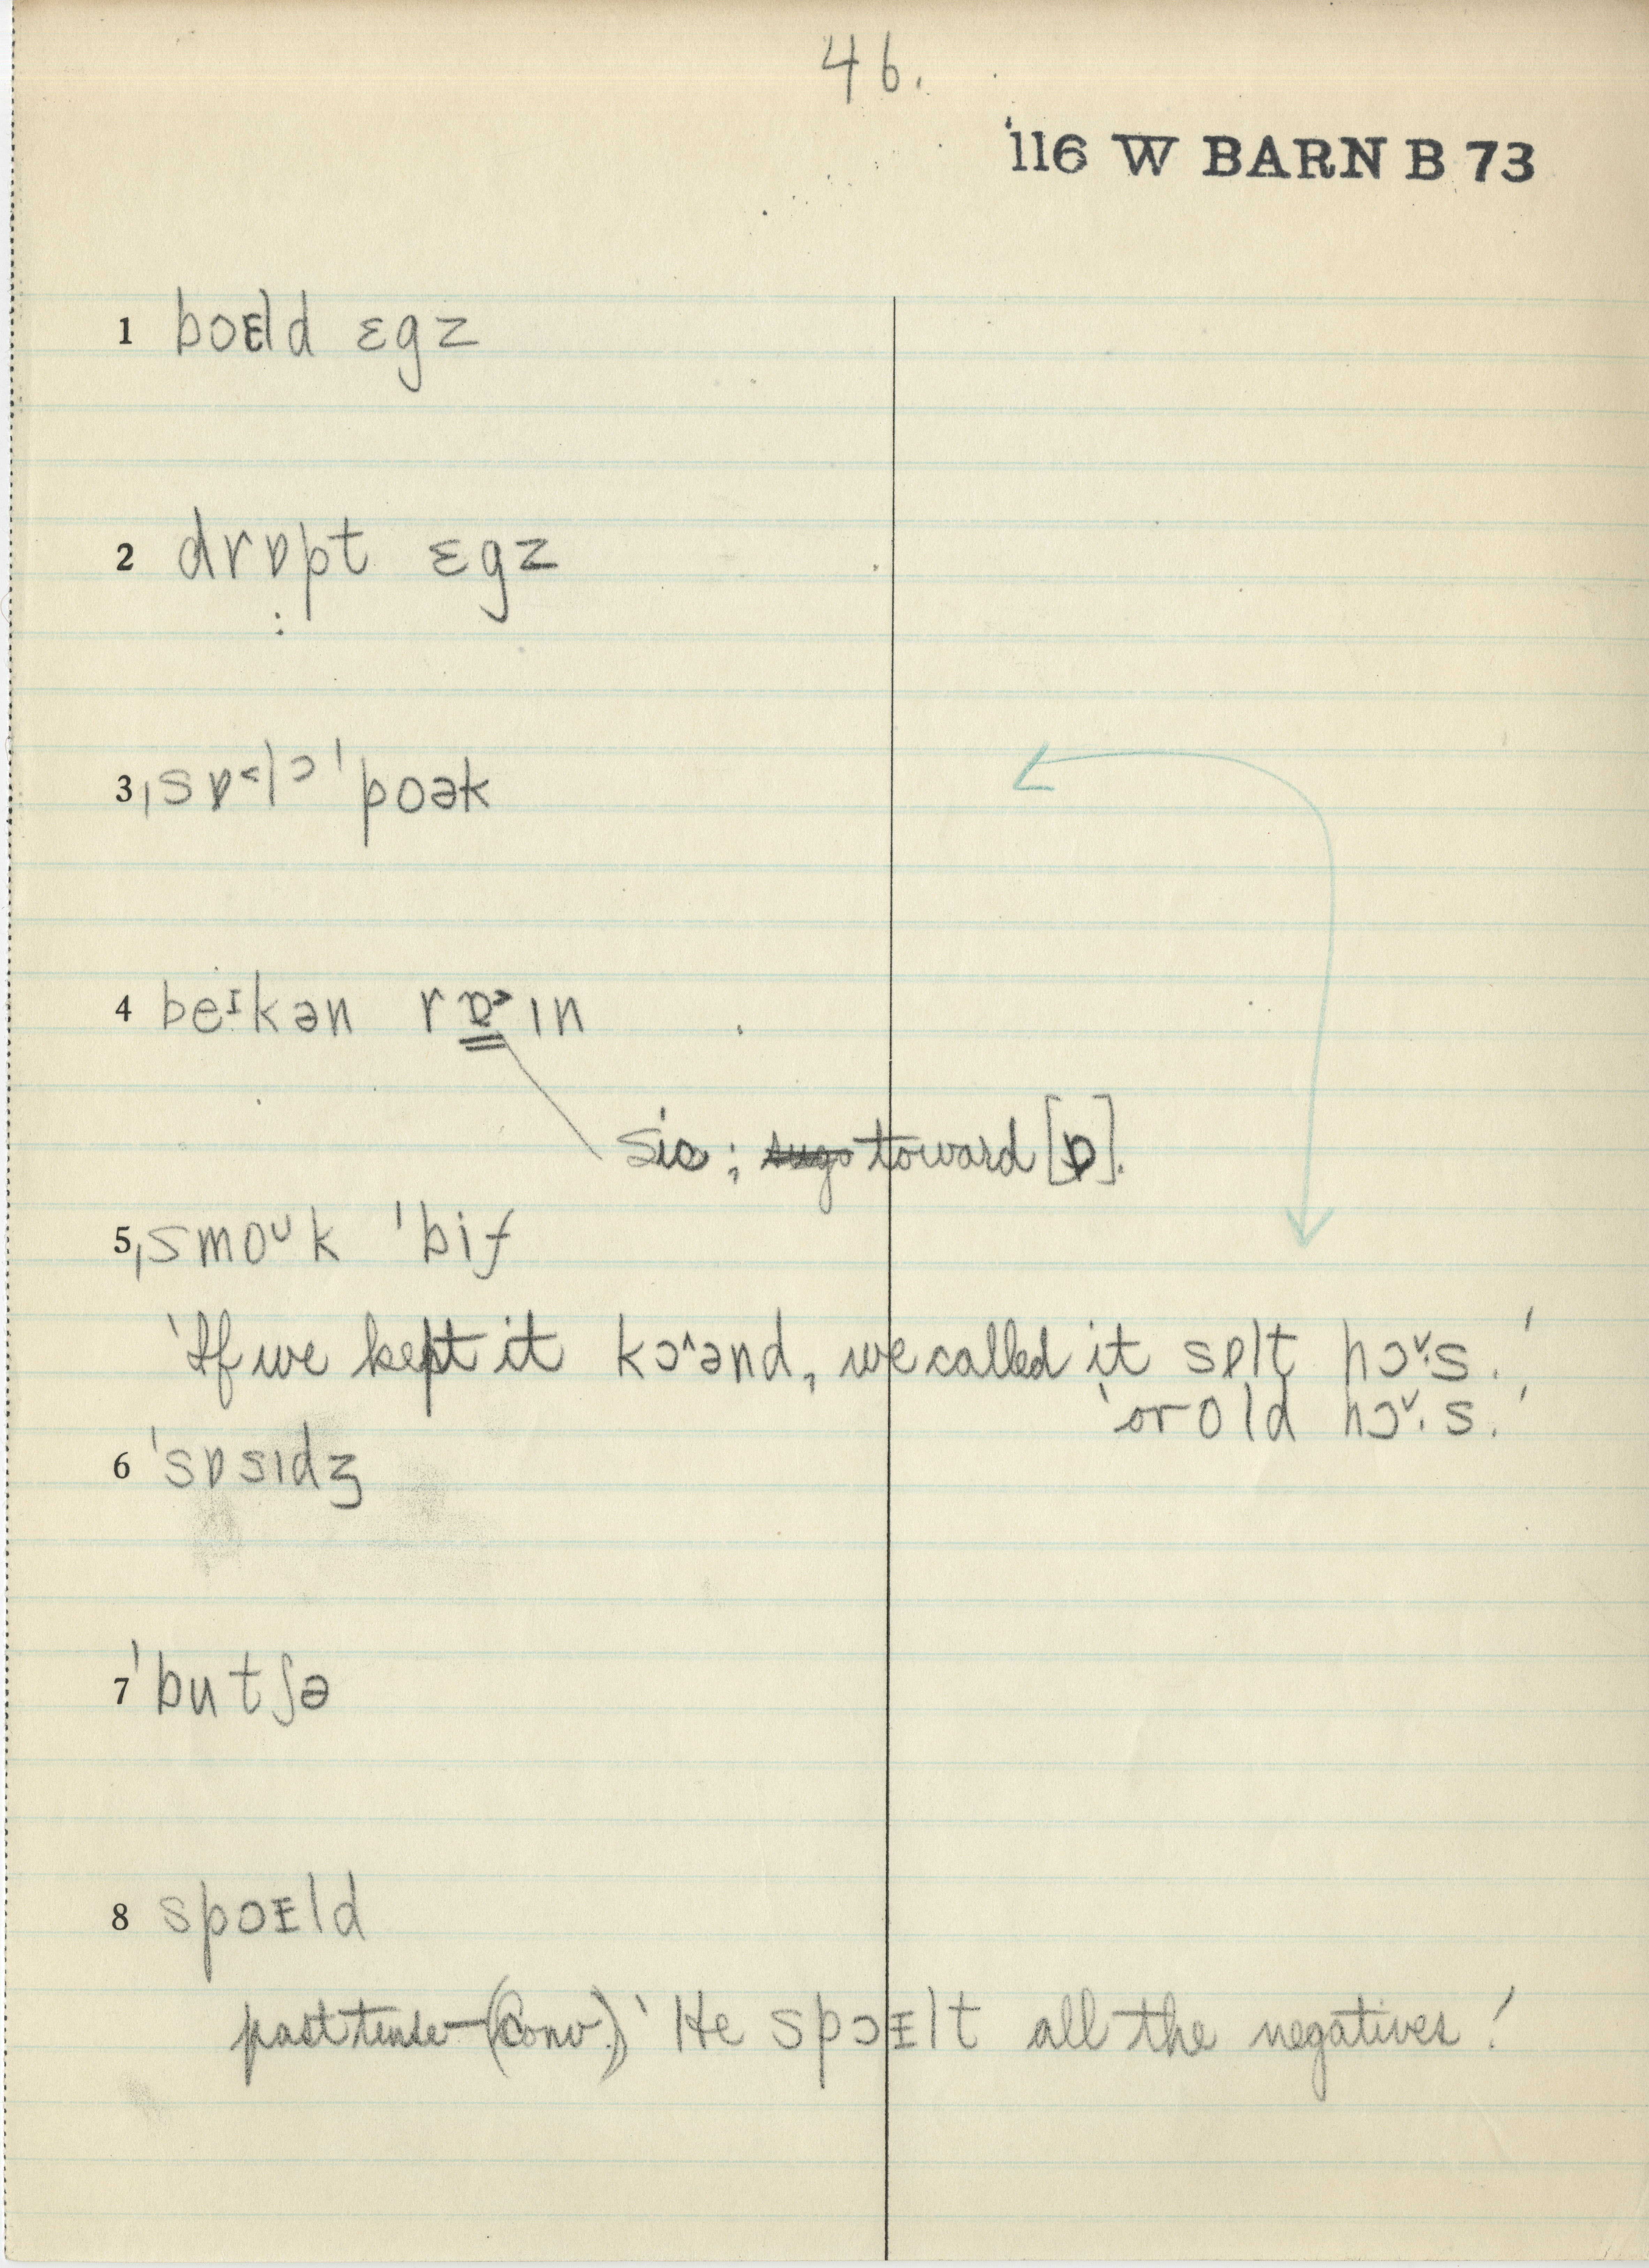 46.
'116 W BARN B 73
1 boɛld ɛgz
2 drɒpt ɛgz
3 ˌsɒ˂lᵊ ˈpoək
4 beɪkən rɒ˃ɪn
sic; toward [ɒ].
5 ˌsmoᴜk ˈbif
'If we kept it kɔ^ənd, we called it sɒlt hɔˇ·s.'
'or old hɔˇ·s.'
6 ˈsɒsɪdʒ
7 ˈbutʃə
8 spɔɪld
past tense – (Conv.) 'He spɔɪlt all the negatives.'